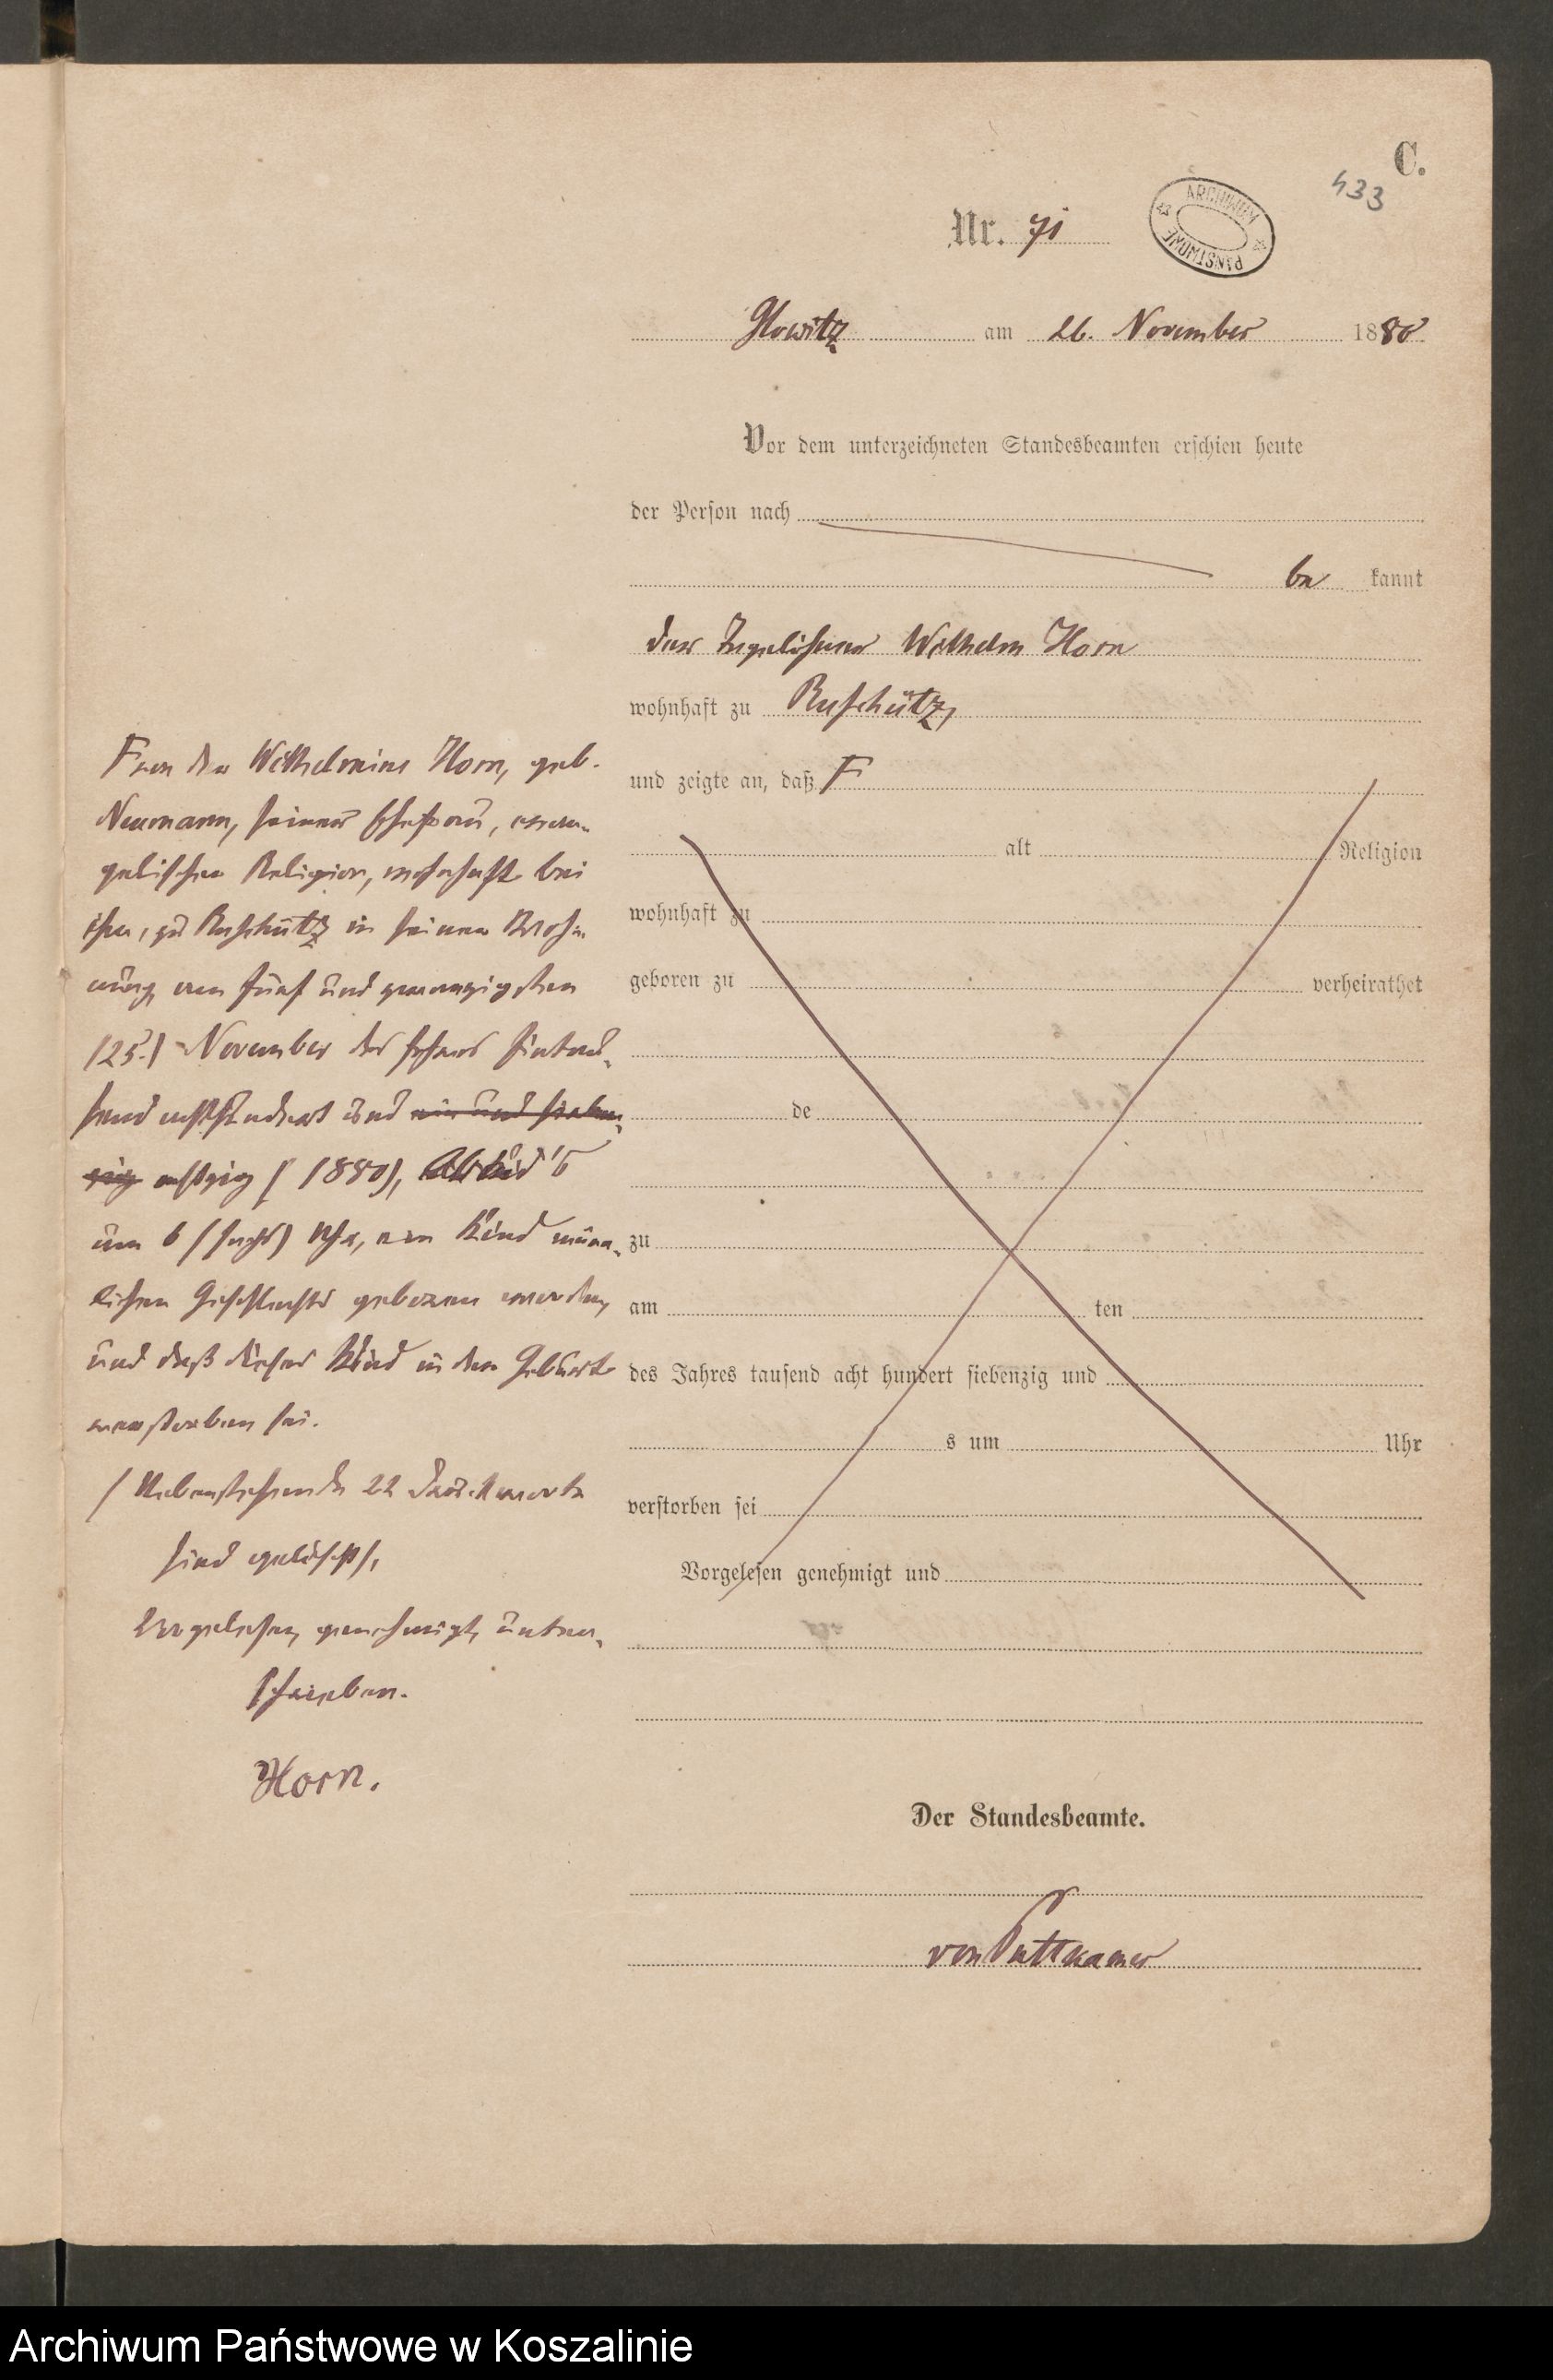 C.
433
Nr. 71
ARCHIWUM PAŃSTWOWE
Glowitz am 26. November 1880
Vor dem unterzeichneten Standesbeamten erschien heute
der Person nach
be kannt
der Tagelöhner Wilhelm Horn
wohnhaft zu Ruschütz,
und zeigte an, daß F
alt Religion
wohnhaft zu
geboren zu verheirathet
de
zu
am ten
des Jahres tausend acht hundert siebenzig und
s um Uhr
verstorben sei
Vorgelesen genehmigt und
F von der Wilhelmine Horn, geb.
Neumann, seiner Ehefrau, evan-
gelischer Religion, wohnhaft bei
ihm, zu Ruschütz in seiner Woh-
nung am fünf und zwanzigsten
(25.) November des Jahres eintau-
send achthundert und ein und sieben-
zig achtzig (1880), Abends
um 6 (sechs) Uhr, ein Kind männ-
lichen Geschlechts geboren worden,
und daß dieses Kind in der Geburt
verstorben sei.
(Nebenstehende 22 Druckworte
sind gelöscht).
Vorgelesen, genehmigt, unter-
schrieben.
Horn.
Der Standesbeamte.
von Puttkamer
Archiwum Państwowe w Koszalinie